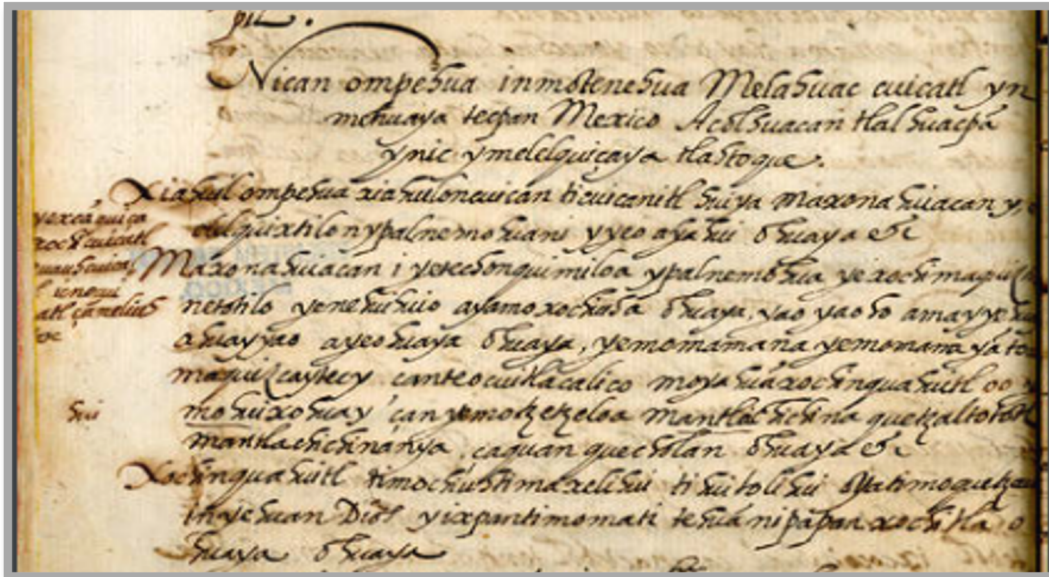 pil.
Nican ompehua inmotenehua Melahuac cuicatl yn
mehuaya tecpan Mexico Acolhuacan tlalhuacpa
ynic ymelelquiçaya tlatoque.
Xiahuilompehua xiahuiloncuican ticuicanitl huiya maxonahuiacan y,
elelquixtilon ypalnemohuani yyeo ayahui ohuaya etc
Maxonahuiacan i yetechonquimiloa ypalnemohua yexochimaquiz
netotilo yenehuihuio ayamoxochiuh ohuaya, yao yaoho amayye
ahuayyao ayeohuaya ohuaya, yemomamana yemomana ya
maquizcaytecy canteocuitlacalico moyahua xochinquahuitl oo
mohuixohuay çanyemotzetzeloa mantlachichina quetzaltotl
mantlachichinanya çaquan quecholan ohuaya etc
Xochinquahuitl timochiuh timaxelihui tihuitolihui oyatimoquetza
in yehuan Dios yixpantimomati tehuan nipapan xochitla o
huaya ohuaya
xochicuicatl
hui